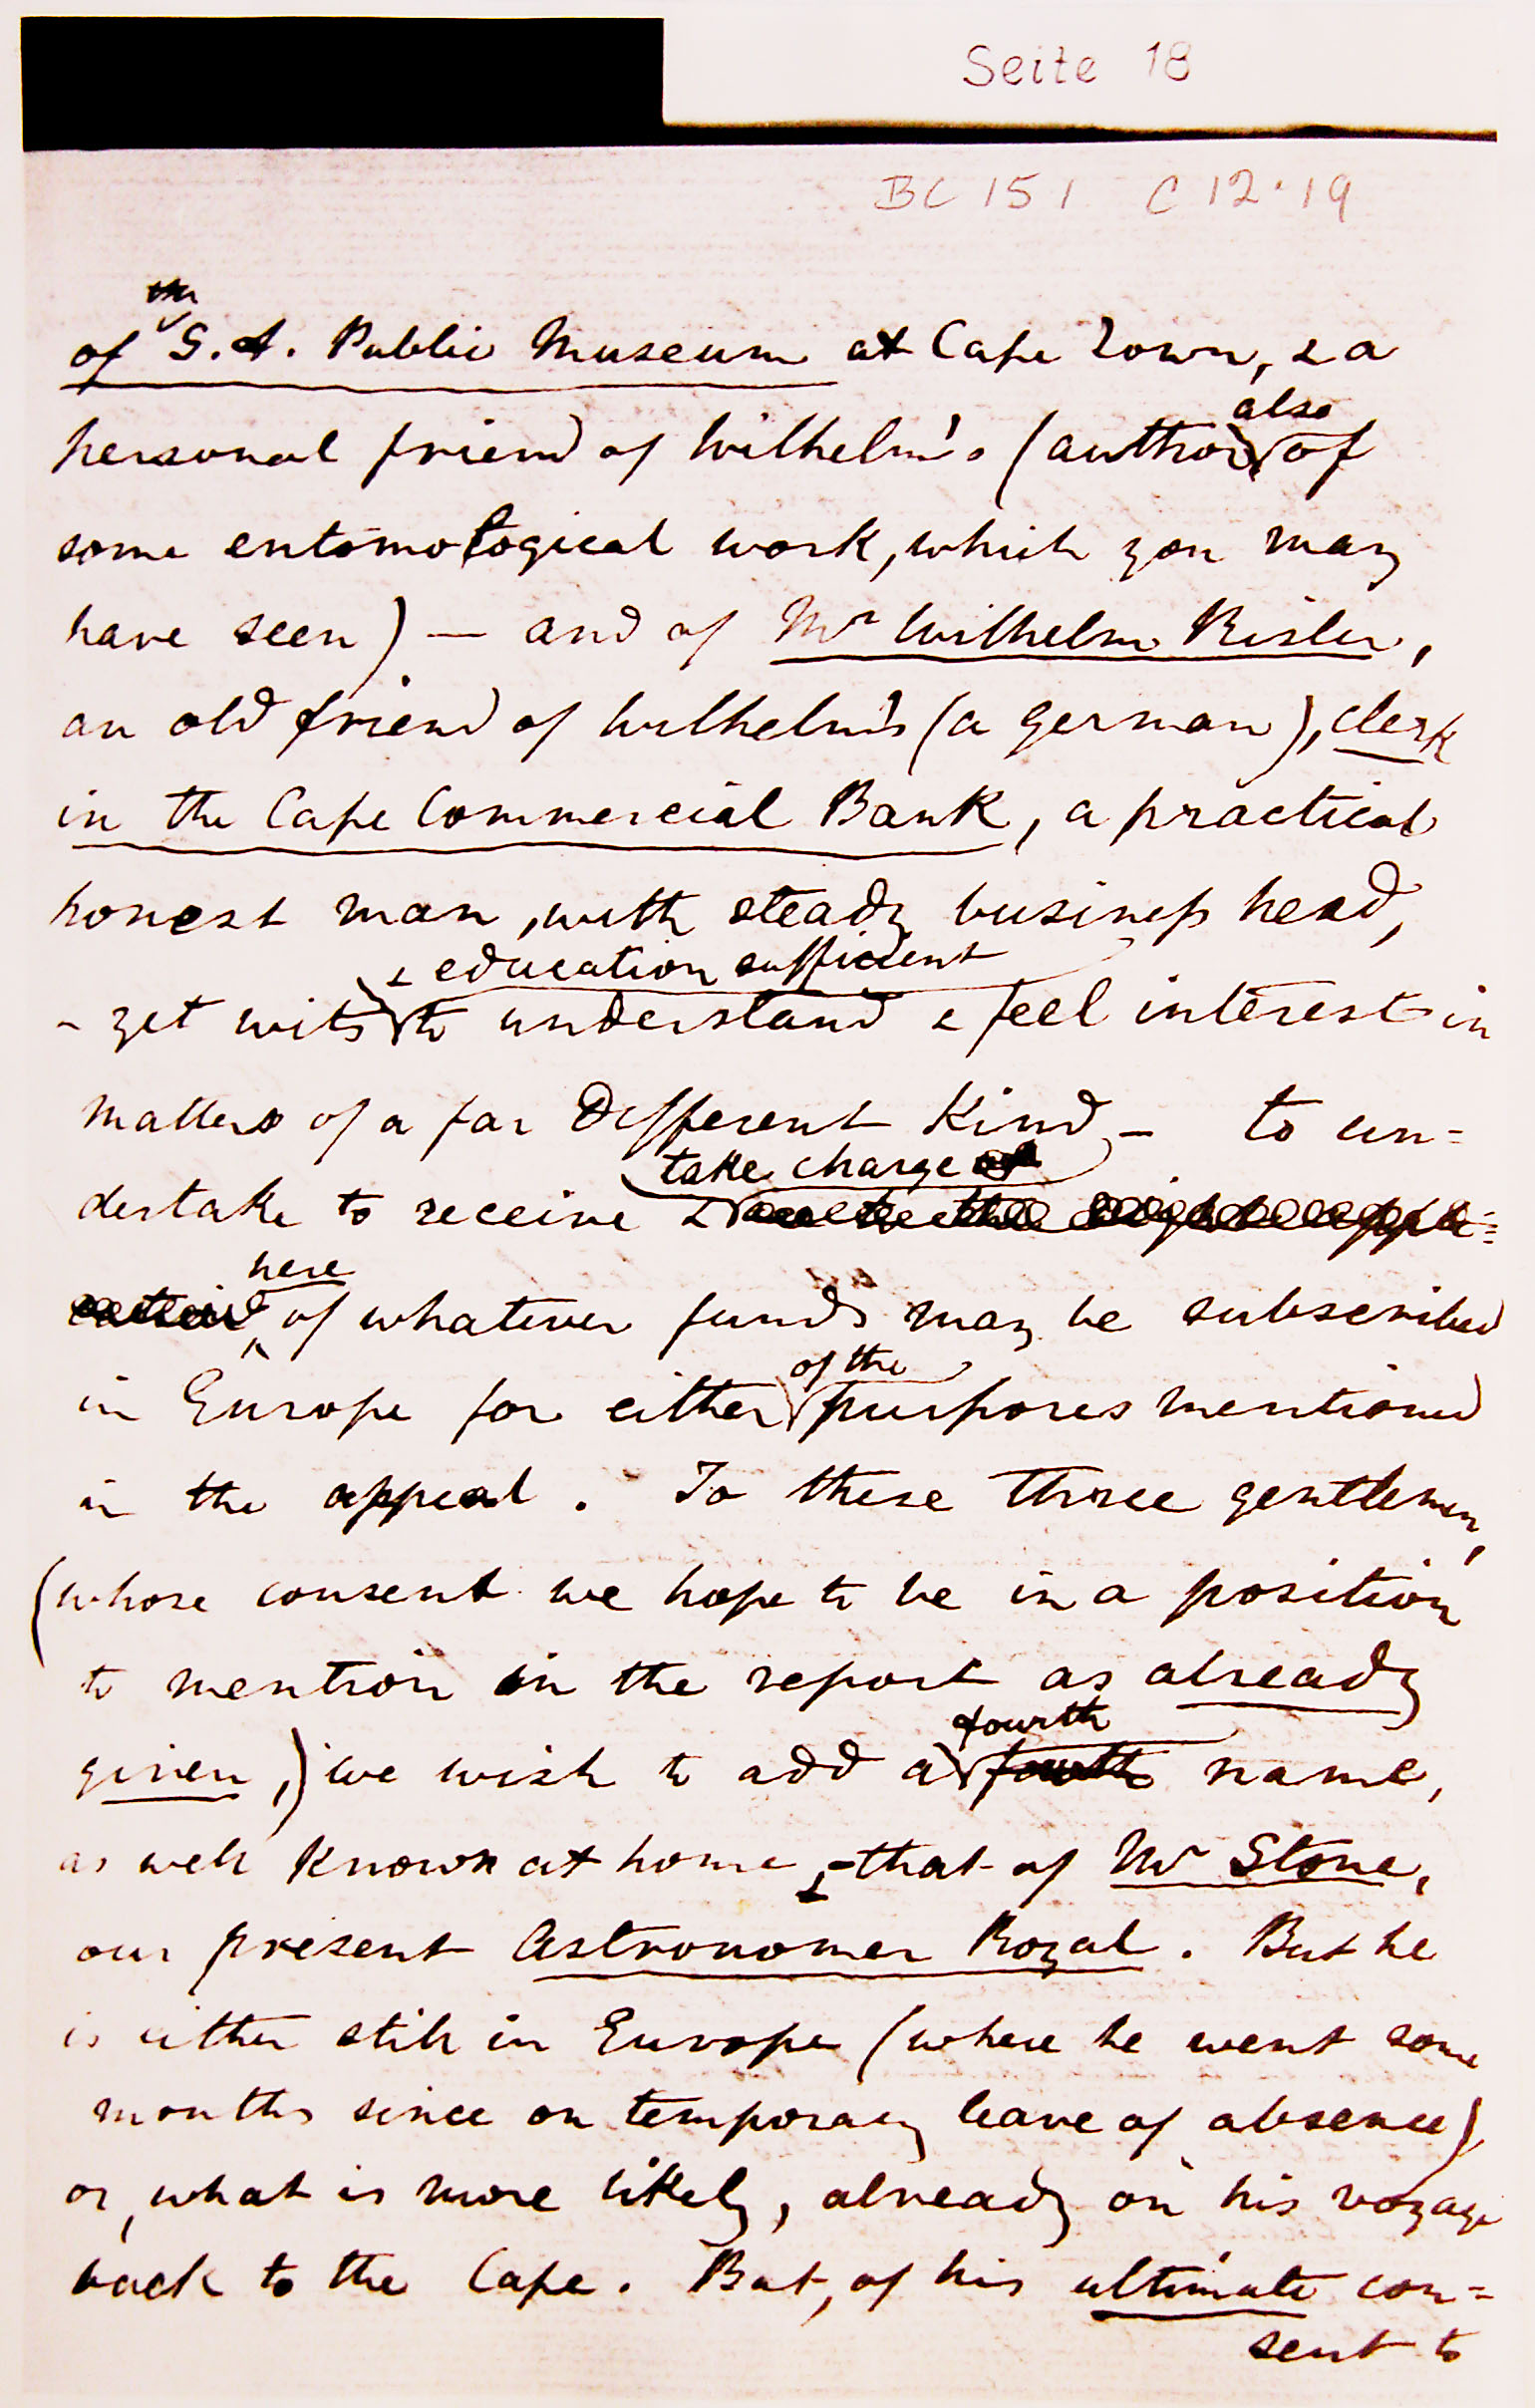 Seite 18
BC 151 C 12.19
the
of S.A. Public Museum at Cape Town, & a
also
personal friend of Wilhelm's (author of
some entomological work, which you may
have seen) — and of Mr Wilhelm Risler,
an old friend of Wilhelm's (a german), clerk
in the Cape Commercial Bank, a practical
honest man, with steady business head,
& education sufficient
- yet wits to understand & feel interest in
matters of a far different kind - to un=
take charge
dertake to receive &
here
of whatever funds may be subscribed
of the
in Europe for either purposes mentioned
in the appeal. To these three gentlemen,
(whose consent we hope to be in a position
to mention in the report as already
fourth
given,) we wish to add a fourth name,
as well known at home, - that of Mr Stone,
our present Astronomer Royal. But he
is either still in Europe (where he went some
months since on temporary leave of absence)
or, what is more likely, already on his voyage
back to the Cape. But, of his ultimate con=
sent to